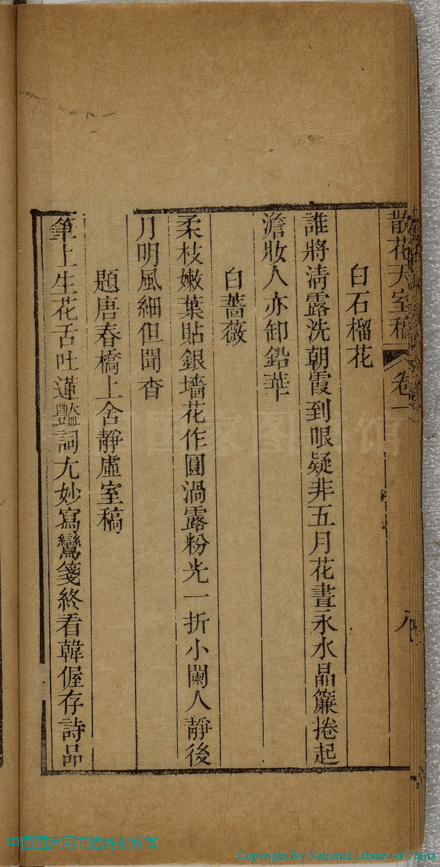 散花天室稿 卷一 八
白石榴花
誰將清露洗朝霞到眼疑非五月花晝永水晶簾捲起
澹妝人亦卸鉛華
白薔薇
柔枝嫩葉貼銀墻花作圓渦露粉光一折小闌人靜後
月明風細但聞香
題唐春橋上舍靜虛室稿
筆上生花舌吐蓮豔詞尤妙寫鸞箋終看韓偓存詩品
Copyright By National Library of China